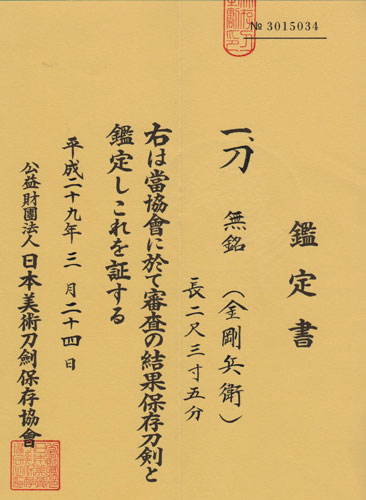 № 3015034
鑑定書
一、刀 無銘（金剛兵衛）
長二尺三寸五分
右は當協會に於て審査の結果保存刀剣と
鑑定しこれを証する
平成二十九年三月二十四日
公益財團法人日本美術刀劍保存協會